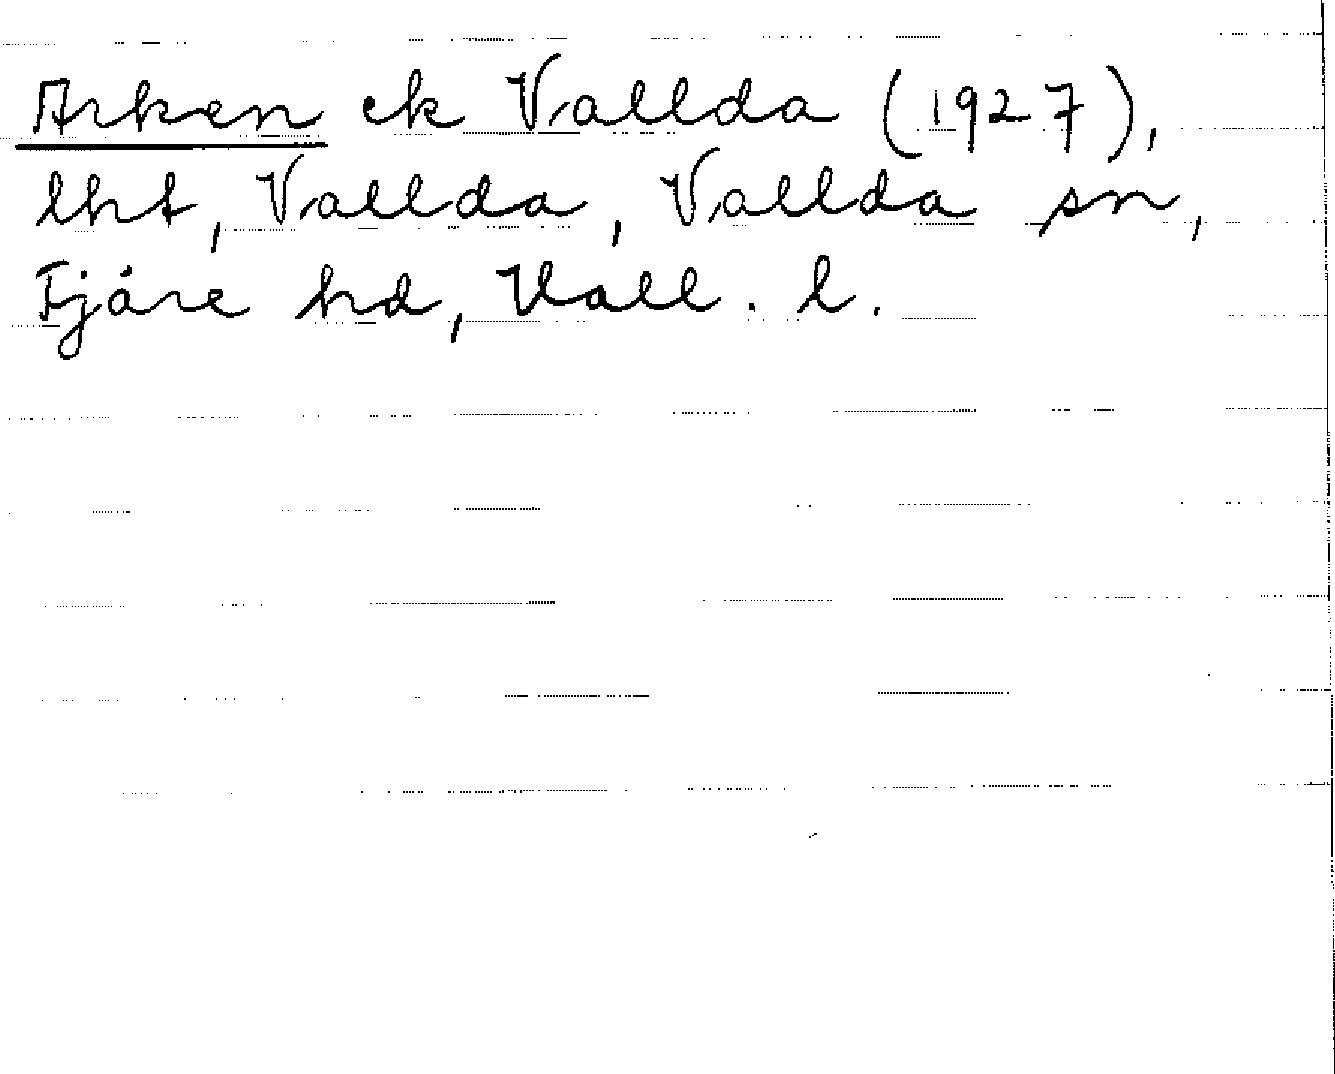 Arken ek Vallda (1927),
lht, Vallda, Vallda sn,
Fjäre hd, Hall. l.